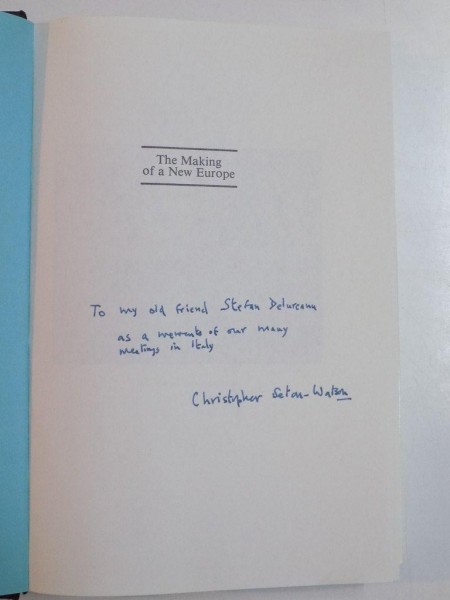 The Making
of a New Europe
To my old friend Stefan Delureanu
as a memento of our many
meetings in Italy
Christopher Seton-Watson